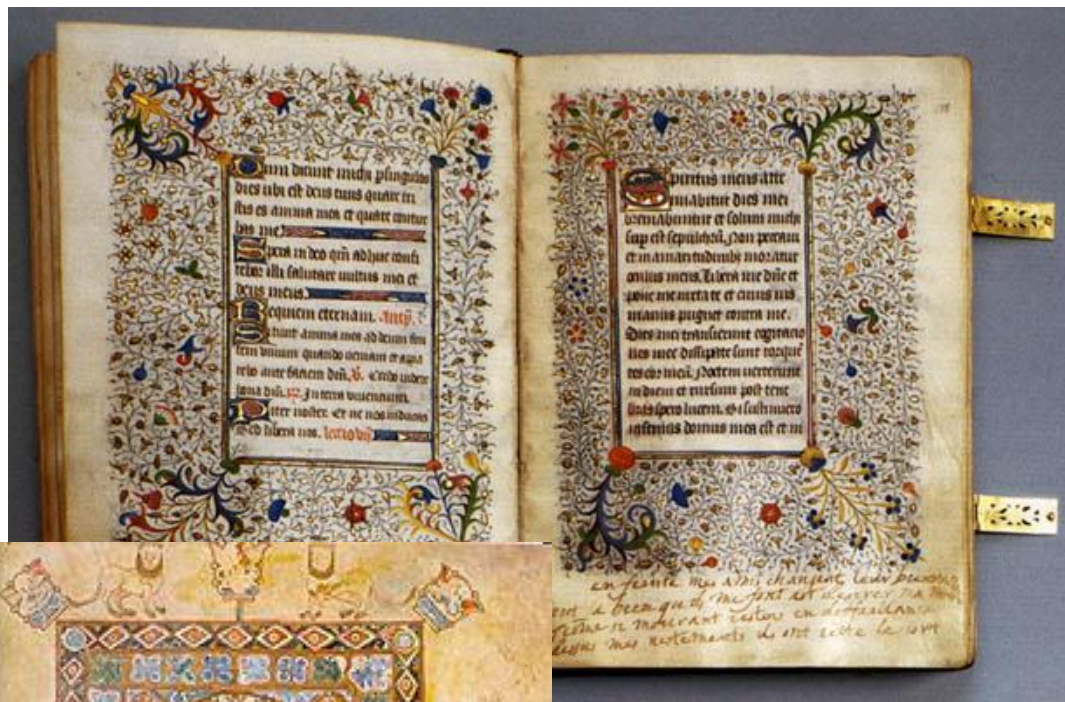 Dum dicunt michi p singulos
dies ubi est deus tuus quare tri
stis es anima mea et quare contur
bas me.
Spera in deo qm̄ adhuc confi
tebor illi salutare uultus mei et
deus meus.
Requiem eternam. Antỹ.
Sitiuit anima mea ad deum fon
tem uiuum quando ueniam et apa
rebo ante faciem dn̄i. V̄. Credo uidere
bona dn̄i. R̄. In terra uiuentium.
Pater noster. Et ne nos inducas
Sed libera nos. lectio vij
Spiritus meus atte
nuabitur dies mei
breuiabuntur et solum michi
sup est sepulchrū. Non peccaui
et in amaritudinibꝫ moratur
oculus meus. Libera me dn̄e et
pone me iuxta te et cuius uis
manus pugnet contra me.
Dies mei transierunt cogitacio
nes mee dissipate sunt torquē
tes cor meū. Noctem uerterunt
in diem et rursum post tene
bras spero lucem. Si sustinuero
infernus domus mea est et in
en feinte mes amis changent leur
le bien qu'ils me font est desirer ma
come si mourant estois en deffaillance
dessus mes vestements ils ont jette le sort